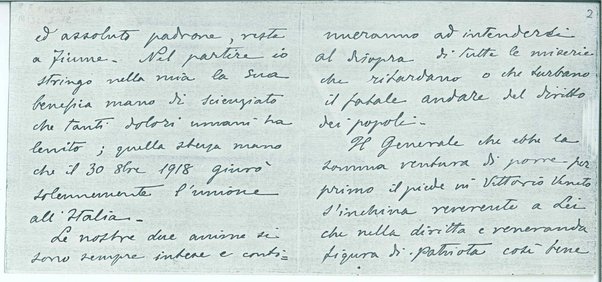 ed assoluto padrone, resta
a Fiume. Nel partire io
stringo nella mia la Sua
benefica mano di scienziato
che tanti dolori umani ha
lenito; quella stessa mano
che il 30 8bre 1918 giurò
solennemente l'unione
all'Italia.
Le nostre due anime si
sono sempre intese e conti=
2
nueranno ad intendersi
al disopra di tutte le miserie
che ritardano o che turbano
il fatale andare del diritto
dei popoli.
Il Generale che ebbe la
somma ventura di porre per
primo il piede in Vittorio Veneto
s'inchina reverente a Lei
che nella diritta e veneranda
figura di patriota così bene